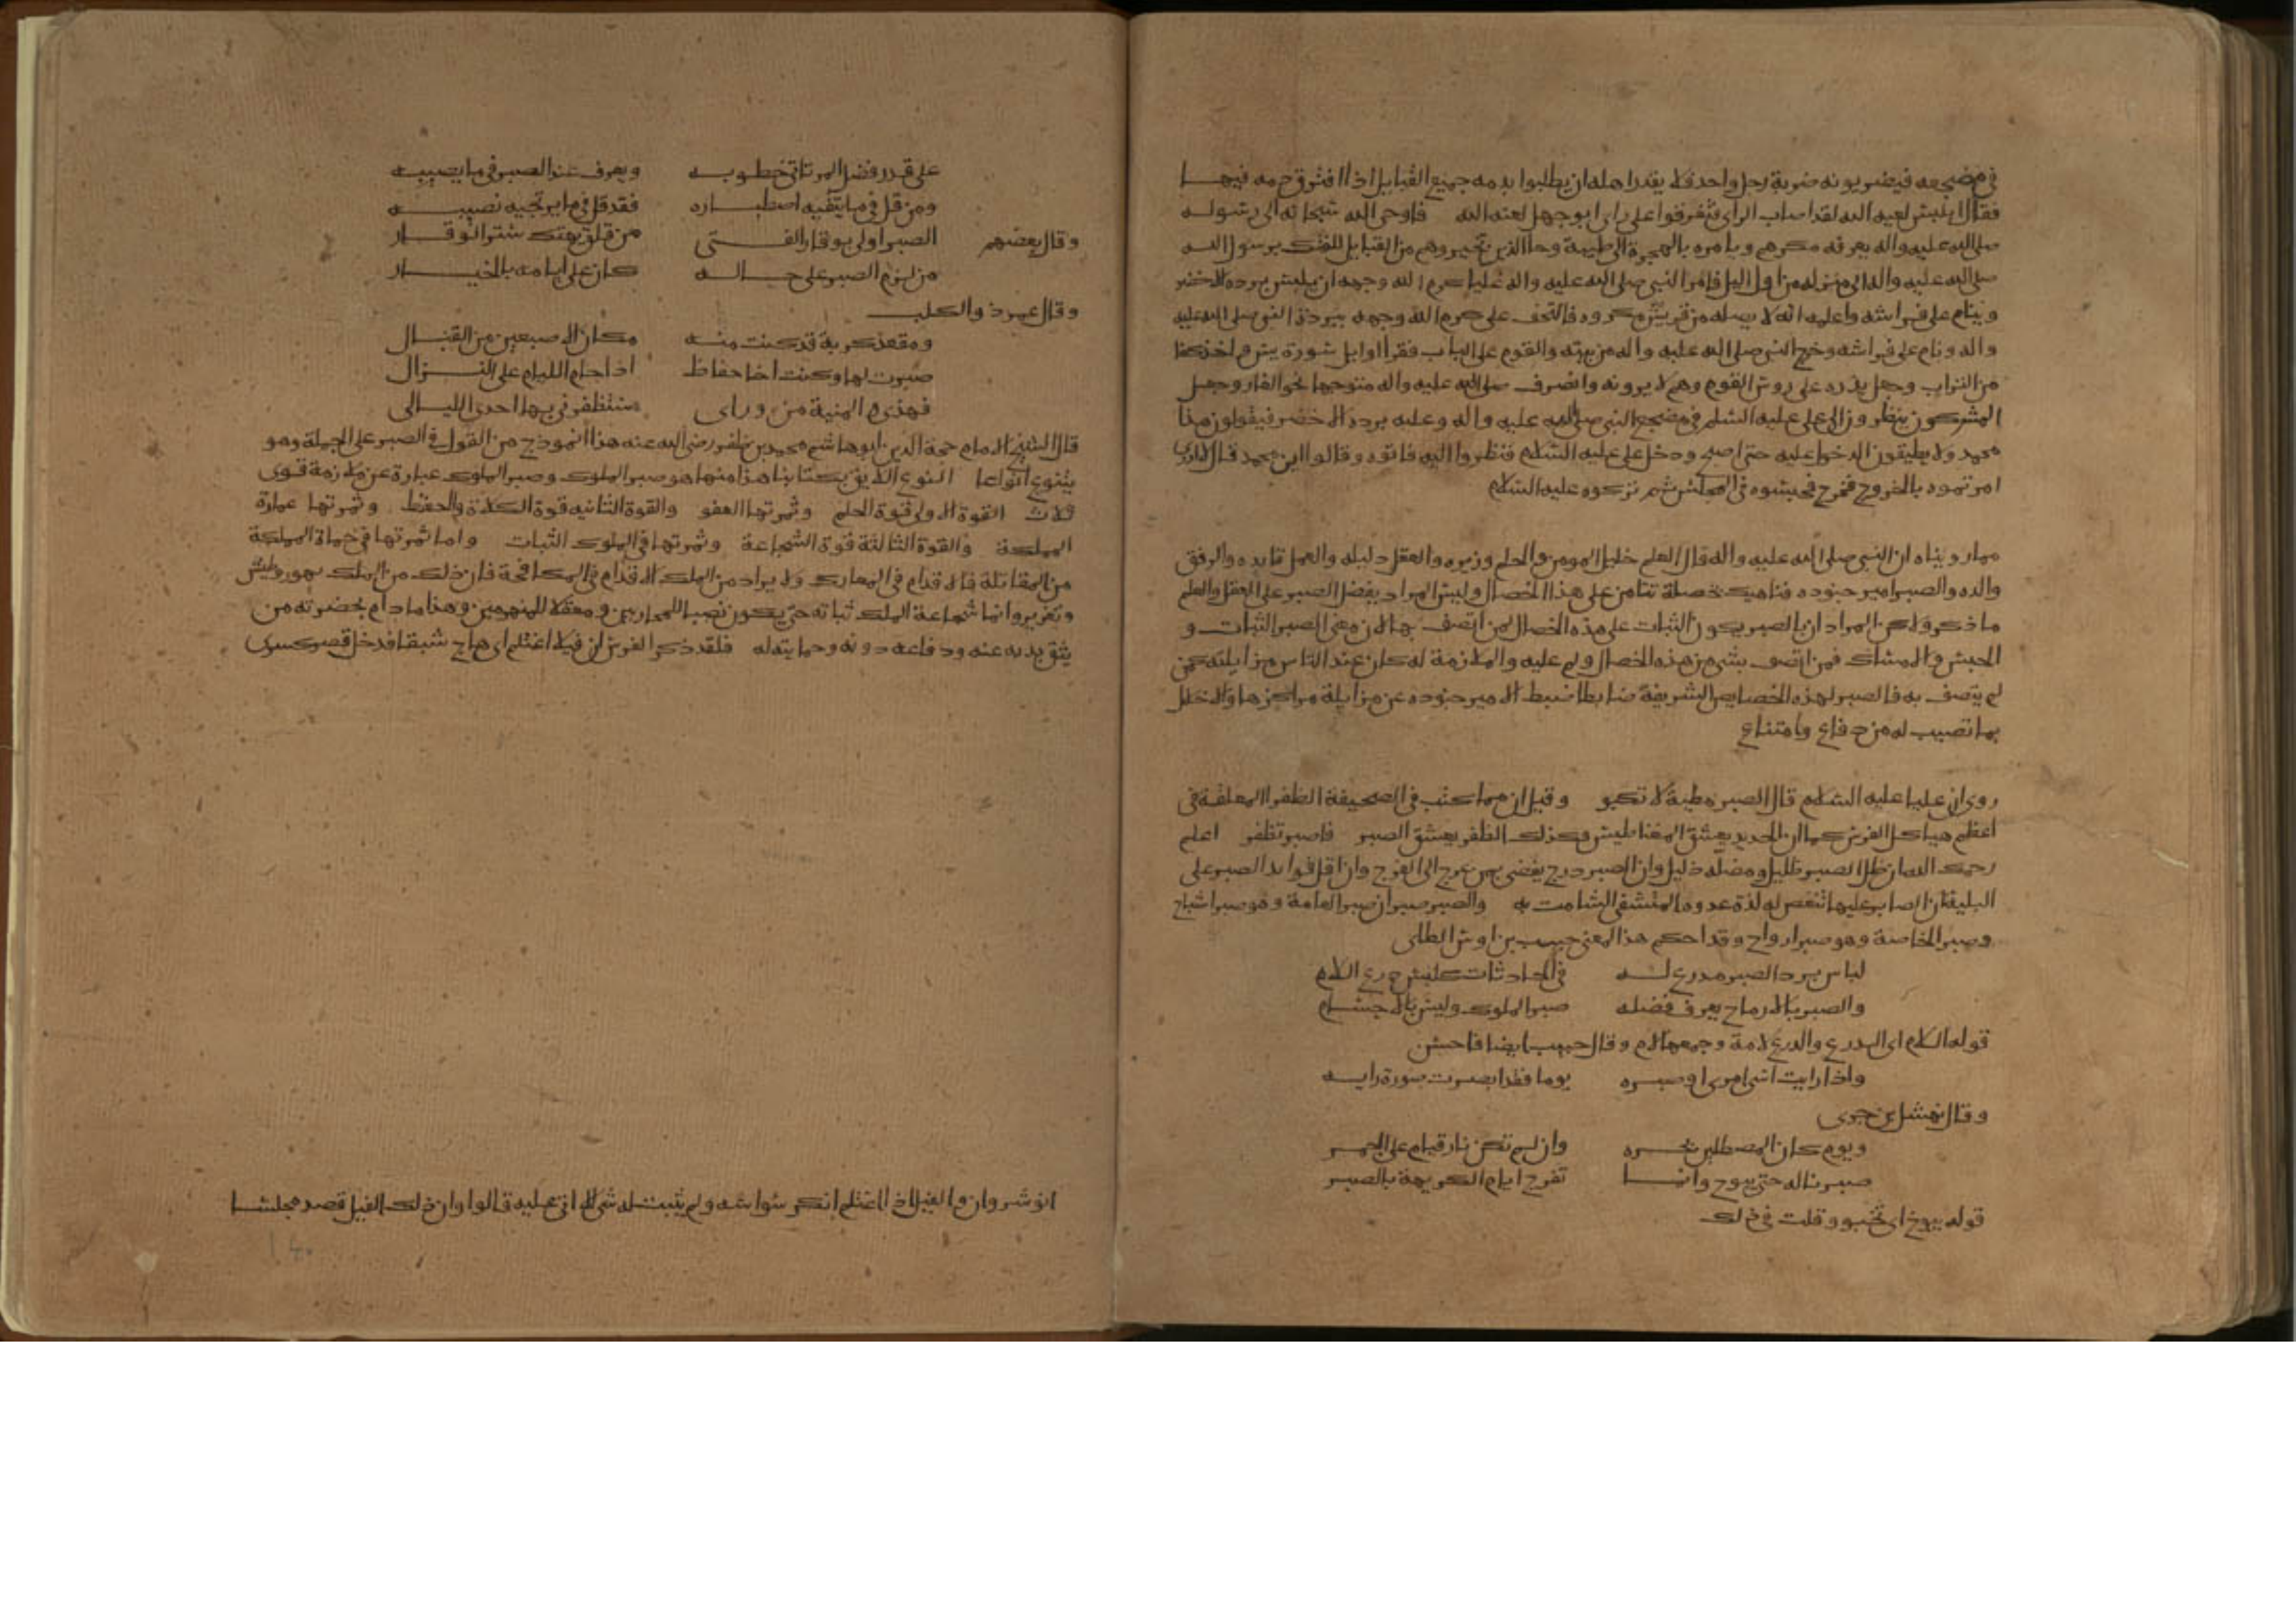 في مضجعه فيضربونه ضربة رجل واحد فلا يقدر اهله ان يطلبوا بدمه جميع القبايل اذا افترق دمه فيها
فقال ابليس لعنه الله لقد اصاب الراي فتفرقوا على راي ابو جهل لعنه الله فاوحى الله سبحانه الى رسوله
صلى الله عليه واله يعرفه مكرهم ويامره بالهجرة الى طيبة وجا الذين تخيروهم من القبايل للفتك برسول الله
صلى الله عليه واله الى منزله من اول اليل فامر النبي صلى الله عليه واله عليا كرم الله وجهه ان يلبس برده الاخضر
وينام على فراشه واعلمه انه لا يصله من قريش مكروه فالتحف على كرم الله وجهه ببردة النبي صلى الله عليه
واله ونام على فراشه وخرج النبي صلى الله عليه واله من بيته والقوم على الباب فقرا اوايل سورة يس واخذ كفا
من التراب وجعل يذره على روس القوم وهم لا يرونه وانصرف صلى الله عليه واله متوجها نحو الغار وجعل
المشركون ينظرون الى على عليه السلم في مضجع النبي صلى الله عليه واله وعليه برده الاخضر فيقولون هذا
محمد ولا يطيقون الدخول عليه حتى اصبح ودخل على عليه السلام فنظروا اليه فاتوه وقالوا اين محمد قال لا ادري
امرتموه بالخروج فخرج فحبسوه في المجلس ثم تركوه عليه السلام
مما رويناه ان النبي صلى الله عليه واله قال العلم خليل المومن والحلم وزيره والعقل دليله والعمل قايده والرفق
والده والصبر امير جنوده فناهيك بخصلة تتامر على هذا الخصال وليس المراد بفضل الصبر على العقل والعلم
ما ذكر ولاكن المراد ان بالصبر يكون الثبات على هذه الخصال لمن اتصف بها لان معنى الصبر الثبات و
الحبس والامساك فمن اتصف بشي من هذه الخصال ولم عليه والملازمة له كان عند الناس من زايلته كمن
لم يتصف به فالصبر لهذه الخصايص الشريفة ضابطا ضبط الامير جنوده عن مزايلة مراكزها والاخلال
بما تصبب له من دفاع وامتناع
روي ان عليا عليه السلام قال الصبر مطية لا تكبو وقيل ان مما كتب في الصحيفة الظفر المعلقة في
اعظم هياكل الفرس كما ان الحديد يعشق المغناطيس وكذلك الظفر يعشق الصبر فاصبر تظفر اعلم
رحمك الله ان ظل الصبر ظليل ومضله ذليل وان الصبر درج يفضي بمن عرج الى الفرج وان اقل فوايد الصبر على
البلية ان الصابر عليها تنغص له لذة عدوه المتشفي الشامت به والصبر صبران صبر العامة وهو صبر اشباح
وصبر الخاصة وهو صبر ارواح وقد احكم هذا المعنى حبيب بن اوس الطاي
لباس برد الصبر مدرع له في الحادثات كلبس درع اللام
والصبر بالارواح يعرف فضله صبر الملوك وليس بالاجسام
قوله اللام اي الدرع والدرع لامة وجمعها لام وقال حبيب ايضا فاحسن
واذا رايت اسى امرى او صبره يوما فقد ابصرت صورة رايه
وقال نهشل بن حري
ويوم كان المصطلين بحره وان لم تكن نار قيام على الجمر
صبرنا له حتى يبوخ وانما تفرج ايام الكريهة بالصبر
قوله يبوخ اي تخبو وقلت في ذلك
على قدر فضل المرء تاتي خطوبه ويعرف عند الصبر في ما يصيبه
ومن قل في ما يتقيه اصطباره فقد قل في ما يرتجيه نصيبه
وقال بعضهم الصبر اولى بوقار الفتى من قلق يهتك ستر الوقار
من لزم الصبر على حاله كان على ايامه بالخيار
وقال عمرو ذو الكلب
ومقعد كربة قد كنت منه مكان الاصبعين من القبال
صبرت لها وكنت اخا حفاظ اذا حام الليام على النزال
فهذي المنية من وراى ستظفر بي بها احدى الليالى
قال الشيخ الامام حجة الدين ابو هاشم محمد بن ظفر رضي الله عنه هذا انموذج من القول في الصبر على الجملة وهو
يتنوع انواعا النوع اللايق بكتابنا هذا منها هو صبر الملوك وصبر الملوك عبارة عن ملازمة قوى
ثلاث القوة الاولى قوة الحلم وثمرتها العفو والقوة الثانيه قوة الكلاة والحفظ وثمرتها عمارة
المملكة والقوة الثالثة قوة الشجاعة وثمرتها في الملوك الثبات واما ثمرتها في حماة المملكة
من المقاتلة فالاقدام في المعارك ولا يراد من الملك الاقدام في المكافحة فان ذلك من الملك تهور وطيش
وتغرير وانما شجاعة الملك ثباته حتى يكون نصبا للمحاربين ومعقلا للمنهزمين وهذا ما دام بحضرته من
يثق بذبه عنه ودفاعه دونه وحمايته له فلقد ذكر الفرس ان فيلا اغتلم اي هاج شبقا فدخل قصر كسرى
انوشروان والفيل اذا اغتلم انكر سواسه ولم يثبت له شي الا اتى عليه قالوا وان ذلك الفيل قصد مجلسا